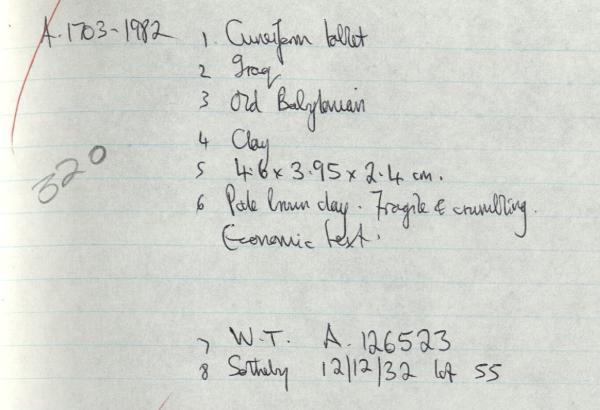 A.1703-1982
1 Cuneiform tablet
2 Iraq
3 Old Babylonian
4 Clay
320
5 4.6 x 3.95 x 2.4 cm.
6 Pale brown clay. Fragile & crumbling.
Economic text.
7 W.T. A. 126523
8 Sotheby 12/12/32 lot 55